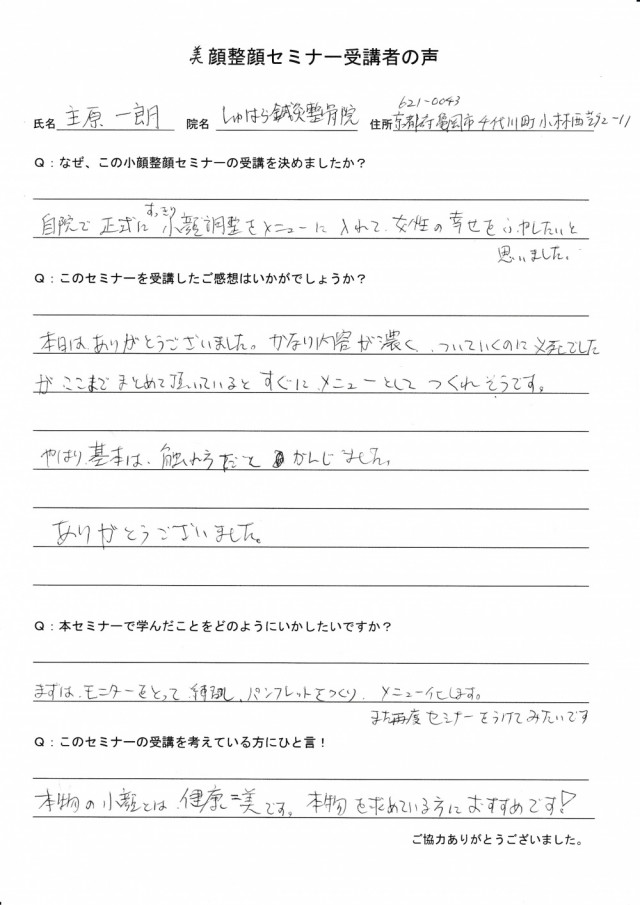 美顔整顔セミナー受講者の声
621-0043
氏名 主原 一朗 院名 しゅはら鍼灸整骨院 住所 京都府亀岡市千代川町小林西芝2-11
Q:なぜ、この小顔整顔セミナーの受講を決めましたか?
すっきり
自院で正式に小顔調整をメニューに入れて、女性の幸せをふやしたいと
思いました。
Q:このセミナーを受講したご感想はいかがでしょうか?
本日は、ありがとうございました。かなり内容が濃く、ついていくのに必死でした
がここまでまとめて頂いているとすぐに、メニューとしてつくれそうです。
やはり、基本は、触れ方だとかんじました。
ありがとうございました。
Q:本セミナーで学んだことをどのようにいかしたいですか?
まずは、モニターをとって練習し、パンフレットをつくり、メニュー化します。
また再度セミナーをうけてみたいです
Q:このセミナーの受講を考えている方にひと言!
本物の小顔とは、健康=美です。本物を求めている方におすすめです♡
ご協力ありがとうございました。